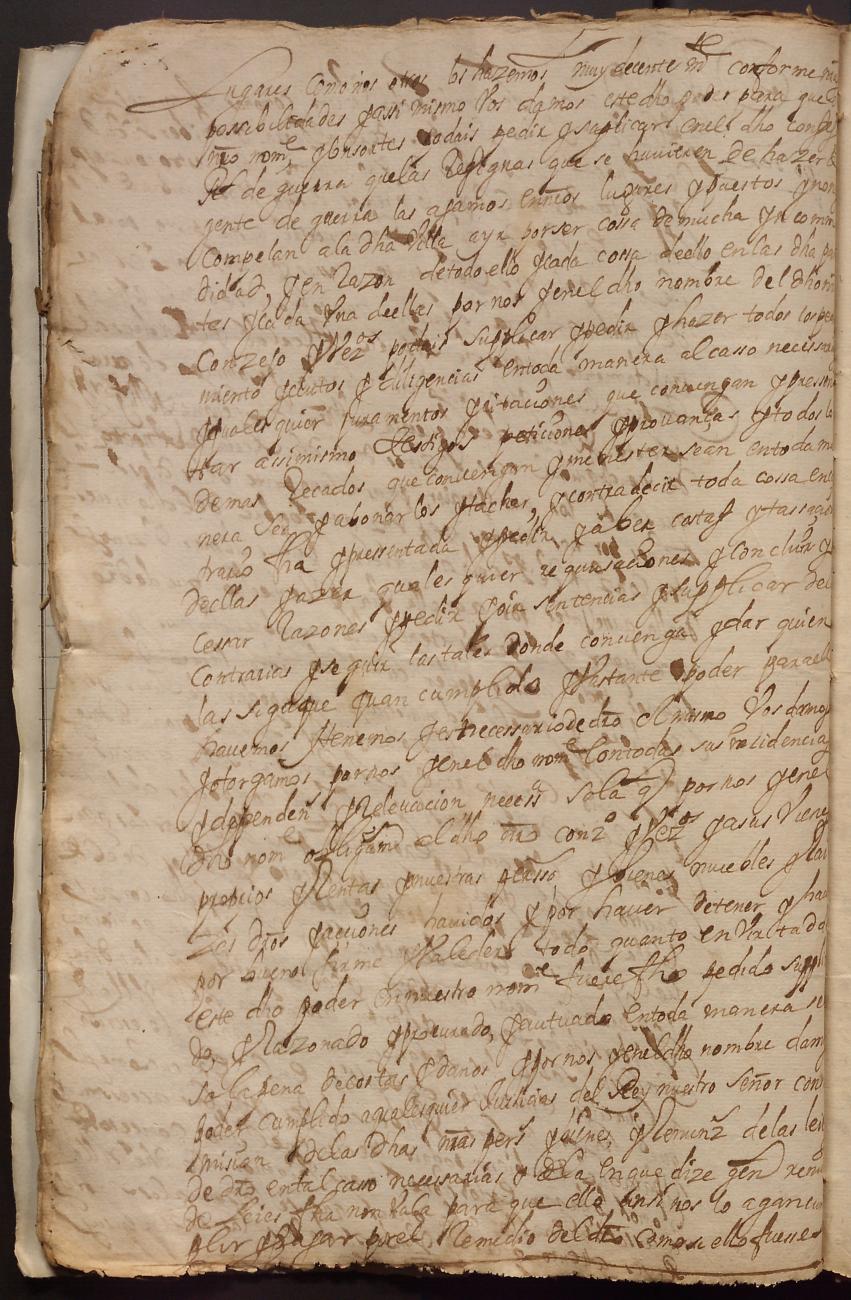 Lugares como nos otros los hazemos muy decente mte conforme nras
possibilidades y assi mismo Vos damos este dho poder para que en
nro nome y consortes podais pedir y suplicar en el dho consejo
de guerra que las Resignas que se huvieren de hazer de
gente de guerra las agamos en nros lugares y puestos y no nos
compelan a la dha Villa a yr por ser cossa de mucha yncommo
didad, y en Razon de todo ello y cada cossa de ello en las dha par
tes y cada Una de ellas por nos y en el dho nombre del dho nro
Conzejo y Vezos podais suplicar y pedir y hazer todos los pedi
miento y autos y diligencias en toda manera al casso necessari
y quales quier juramentos y citaciones que convengan y pressen
tar assimismo testigos peticiones y provanças y todos los
demas Recados que convengan y menester sean en toda ma
nera y abonarlos y tachar, y contradecir toda cossa en con
trario fha y pressentada y pedir y aber costas y tassazion
de ellas y azer quales quier recussaciones y concluir y
cessar Razones y pedir y oir sentencias y supplicar de las
Contrarias y seguir las tales donde convenga y dar quien
las siga que quan cumplido y bastante poder para ello
havemos y tenemos y es necessario de dro el mismo Vos damos
y otorgamos por nos y en el dho nome con todas sus yncidencias
y dependen y Relevacion necessa so la qual por nos y en el
dho nome obligamos el dho nro conzo y Vezos y a sus Vienes
propios y Rentas y nuestras perssos y bienes muebles y Rai
zes dros y actiones havidos y por haver de tener y haver
por bueno firme y Valedero todo quanto en Virtud de
este dho poder en nuestro nome fuere fho pedido suppli
do, y Razonado y procurado, y autuado en toda manera so
la pena de costas y daños y por nos y en el dho nombre damos
poder cumplido a qualesquier Justicias del Rey nuestro señor con
mission de las dhas nras pers y bienes y Renunz de las leies
de dro en tal casso necessarias y la en que dize genl renun
de Leies fha non Vala para que ello ansi nos lo agan cum
plir y pagar por el Remedio del dro como si ello fuesse